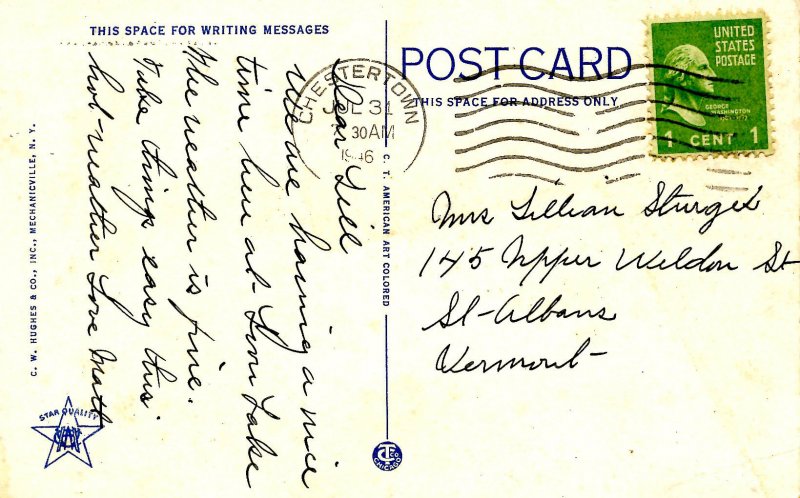 THIS SPACE FOR WRITING MESSAGES
Dear Lill
We are having a nice
time here at Loon Lake
The weather is fine.
Take things easy this
hot weather Love Matt
C. W. HUGHES & CO., INC., MECHANICVILLE, N. Y.
STAR QUALITY
C. T. AMERICAN ART COLORED
CT CO
CHICAGO
POST CARD
THIS SPACE FOR ADDRESS ONLY
CHESTERTOWN
JUL 31
30AM
1946
UNITED
STATES
POSTAGE
GEORGE
WASHINGTON
1 CENT 1
Mrs Lillian Sturges
145 Upper Weldon St
St-Albans
Vermont-